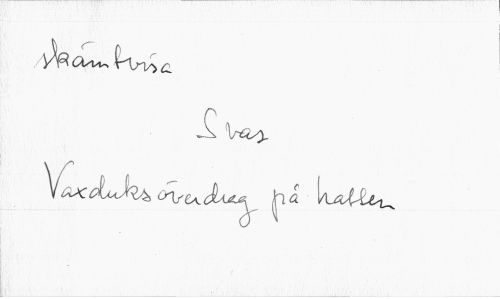 skämtvisa
Svar
Vaxduksöverdrag på hatten